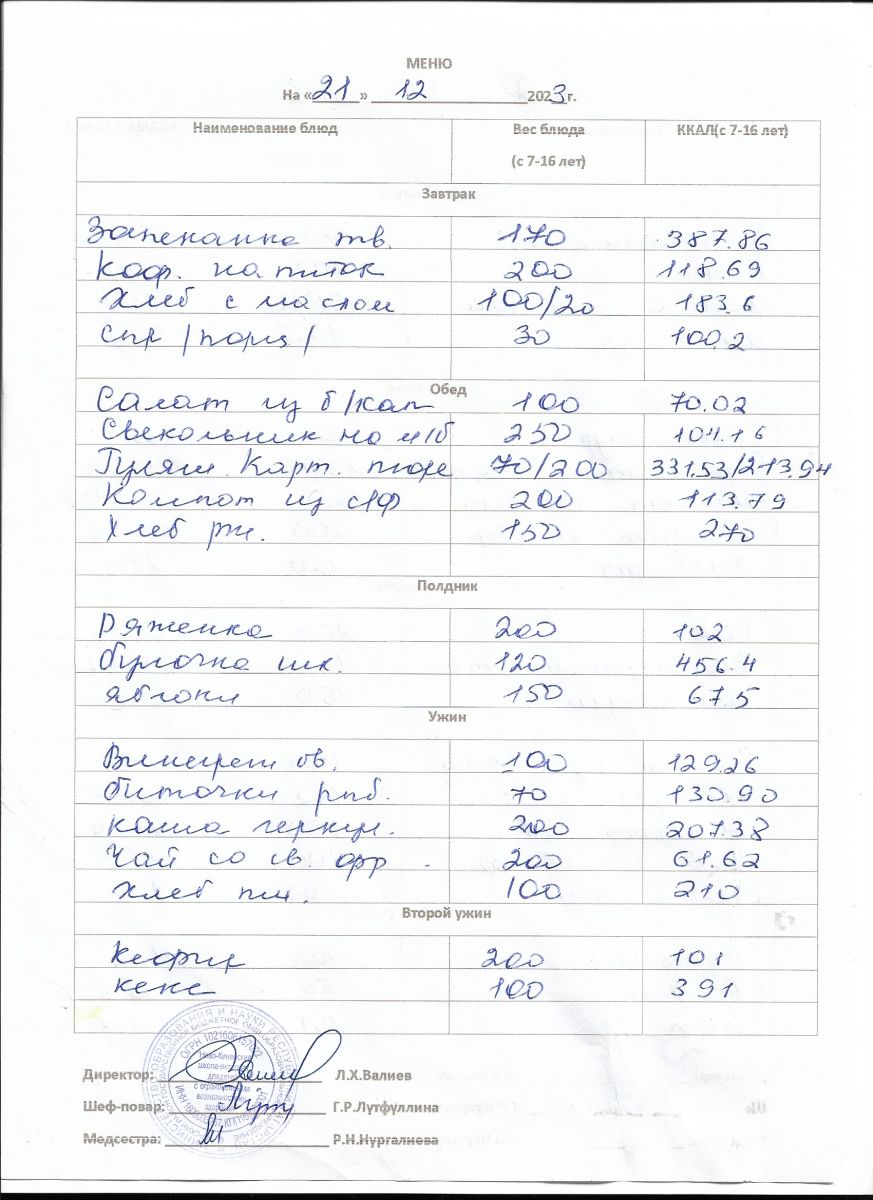 МЕНЮ
На «21» 12 2023г.
Наименование блюд Вес блюда (с 7-16 лет) ККАЛ(с 7-16 лет)
Завтрак
Запеканка тв. 170 387.86
Коф. напиток 200 118.69
Хлеб с маслом 100/20 183.6
Сыр /порц/ 30 100.2
Обед
Салат из б/кап 100 70.02
Свекольник на м/б 250 104.16
Гуляш Карт. пюре 70/200 331.53/213.94
Компот из с/ф 200 113.79
Хлеб рж. 150 270
Полдник
Ряженка 200 102
булочка шк. 120 456.4
яблоки 150 67.5
Ужин
Винегрет ов. 100 129.26
биточки рыб. 70 130.90
каша геркул. 200 207.38
Чай со св. фр 200 61.62
Хлеб пш. 100 210
Второй ужин
Кефир 200 101
кекс 100 391
Директор: Л.Х.Валиев
Шеф-повар: Г.Р.Лутфуллина
Медсестра: Р.Н.Нургалиева